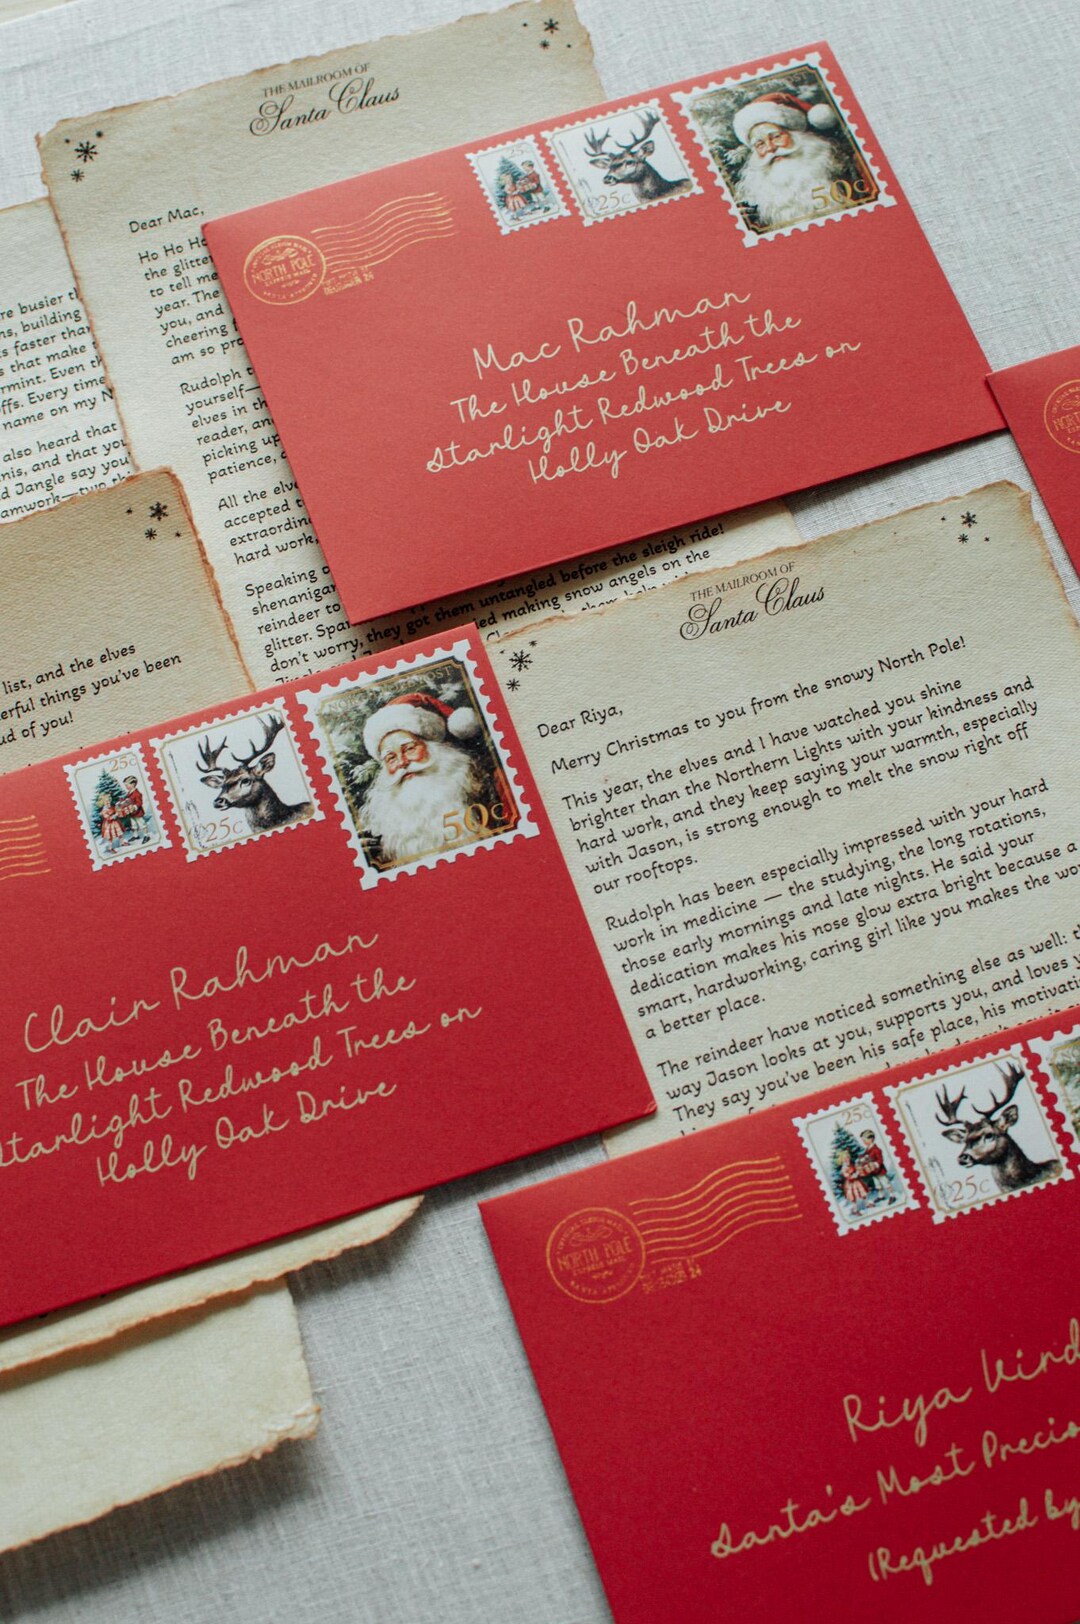 THE MAILROOM OF
Santa Claus
Dear Mac,
Ho Ho Ho
the glitter
to tell me
year. The
you, and
cheering
am so pro
Rudolph
yourself—
elves in th
reader, an
picking up
patience,
All the elve
accepted
extraordin
hard work,
Speaking
shenanigan
reindeer to
glitter. Spa
don't worry, they got them untangled before the sleigh ride!
making snow angels on the
re busier th
ns, building
s faster than
s that make
rmint. Even th
ffs. Every time
name on my N
also heard that
nis, and that you
d Jangle say you
amwork—two
list, and the elves
erful things you've been
ud of you!
25c
25c
50c
NORTH POLE
EXPRESS MAIL
Mac Rahman
The House Beneath the
Starlight Redwood Trees on
Holly Oak Drive
25c
25c
50c
Clain Rahman
The House Beneath the
Starlight Redwood Trees on
Holly Oak Drive
THE MAILROOM OF
Santa Claus
Dear Riya,
Merry Christmas to you from the snowy North Pole!
This year, the elves and I have watched you shine
brighter than the Northern Lights with your kindness and
hard work, and they keep saying your warmth, especially
with Jason, is strong enough to melt the snow right off
our rooftops.
Rudolph has been especially impressed with your hard
work in medicine — the studying, the long rotations,
those early mornings and late nights. He said your
dedication makes his nose glow extra bright because a
smart, hardworking, caring girl like you makes the wo
a better place.
The reindeer have noticed something else as well: th
way Jason looks at you, supports you, and loves y
They say you've been his safe place, his motivati
25c
25c
NORTH POLE
EXPRESS MAIL
Riya Kind
Santa's Most Precio
(Requested by